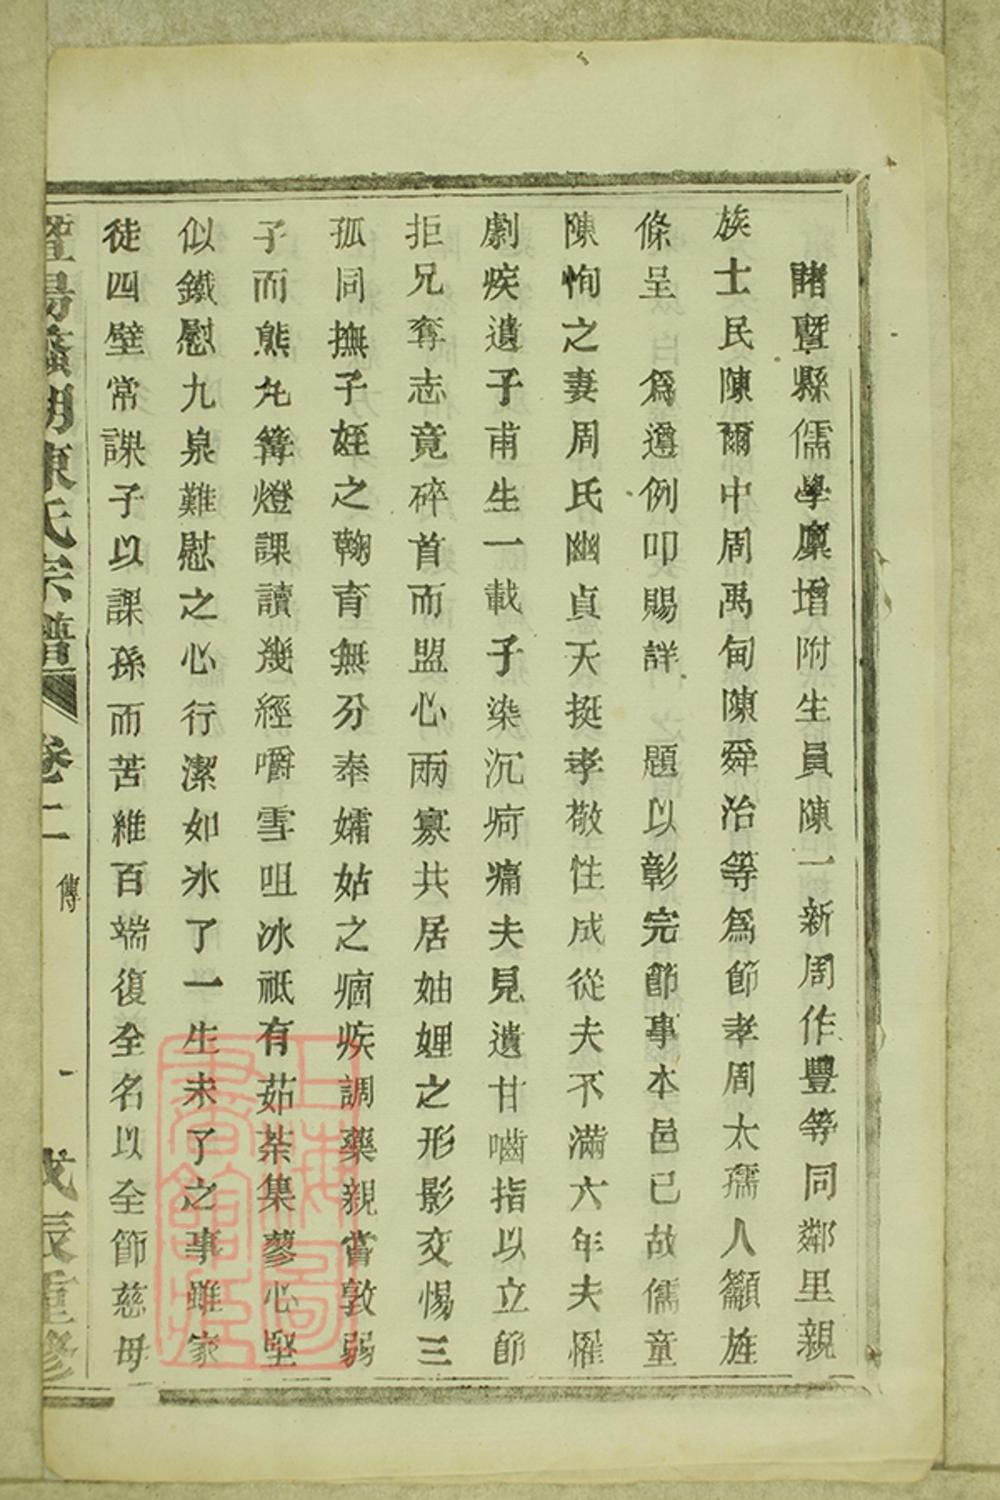 諸暨縣儒學廩增附生員陳一新周作豐等同鄰里親
族士民陳爾中周禹甸陳舜治等爲節孝周太孺人籲旌
條呈　爲遵例叩賜詳　題以彰完節事本邑已故儒童
陳恂之妻周氏幽貞天挺孝敬性成從夫不滿六年夫罹
劇疾遺子甫生一載子染沉疴痛夫見遺甘嚙指以立節
拒兄奪志竟碎首而盟心兩寡共居妯娌之形影交惕三
孤同撫子姪之鞠育無分奉孀姑之痼疾調藥親嘗敦弱
子而熊丸篝燈課讀幾經嚼雪咀冰祗有茹荼集蓼心堅
似鐵慰九泉難慰之心行潔如冰了一生未了之事雖家
徒四壁常課子以課孫而苦維百端復全名以全節慈母
暨陽 湖陳氏宗譜 卷二 傳 一 戊辰重修
上海圖書館藏